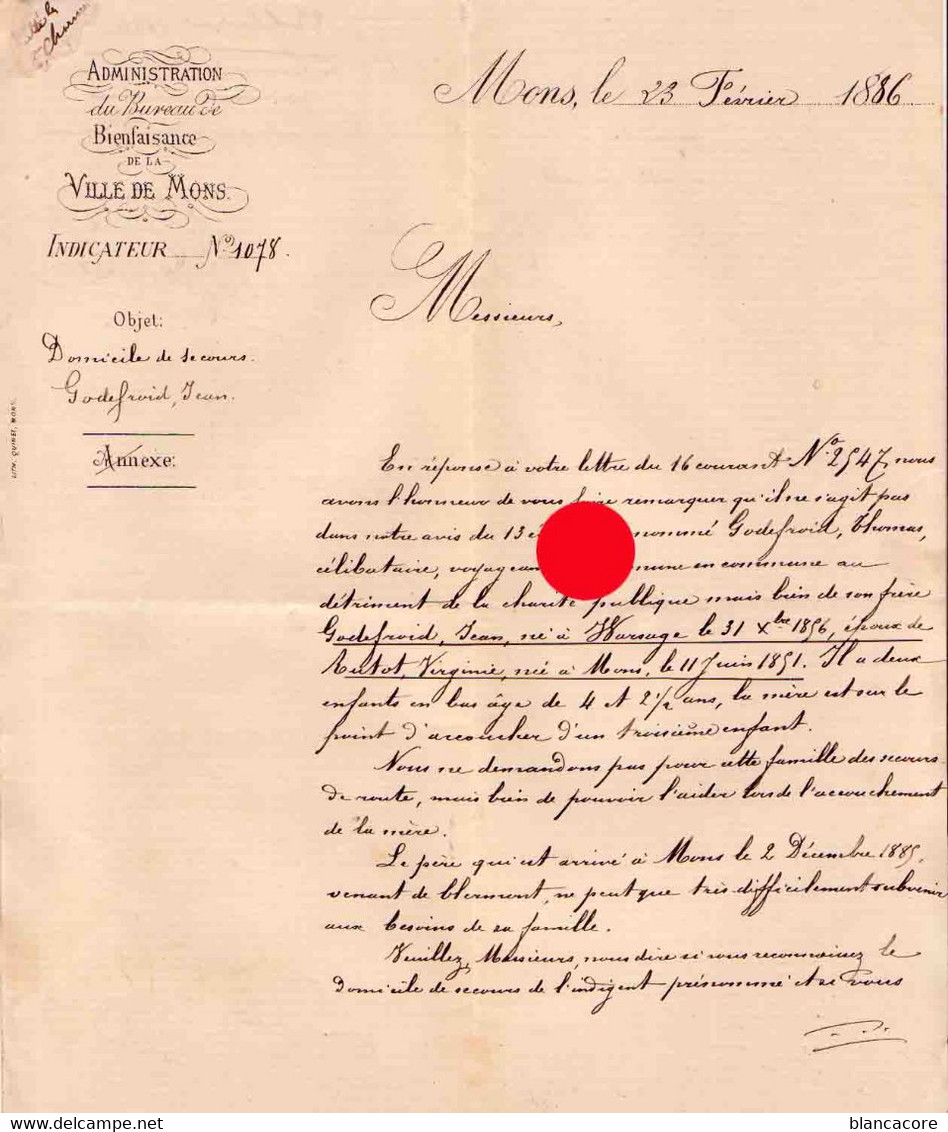 Administration
du Bureau de
Bienfaisance
DE LA
VILLE DE MONS.
INDICATEUR No 1078.
Objet:
Domicile de secours.
Godefroid, Jean.
Annexe:
LITH. QUINET, MONS.
Mons, le 23 Février 1886
Messieurs,
En réponse à votre lettre du 16 courant No 2547, nous
avons l'honneur de vous faire remarquer qu'il ne s'agit pas
dans notre avis du 13 nommé Godefroid, Thomas,
célibataire, voyageant commune en commune au
détriment de la charité publique mais bien de son frère
Godefroid, Jean, né à Warsage le 31 Xbre 1856, époux de
Rutot, Virginie, née à Mons, le 11 Juin 1851. Il a deux
enfants en bas âge de 4 et 2 1/2 ans, la mère est sur le
point d'accoucher d'un troisième enfant.
Nous ne demandons pas pour cette famille des secours
de route, mais bien de pouvoir l'aider lors de l'accouchement
de la mère.
Le père qui est arrivé à Mons le 2 Décembre 1885,
venant de Clermont, ne peut que très difficilement subvenir
aux besoins de sa famille.
Veuillez, Messieurs, nous dire si vous reconnaissez le
domicile de secours de l'indigent prénommé et si vous
blancacore